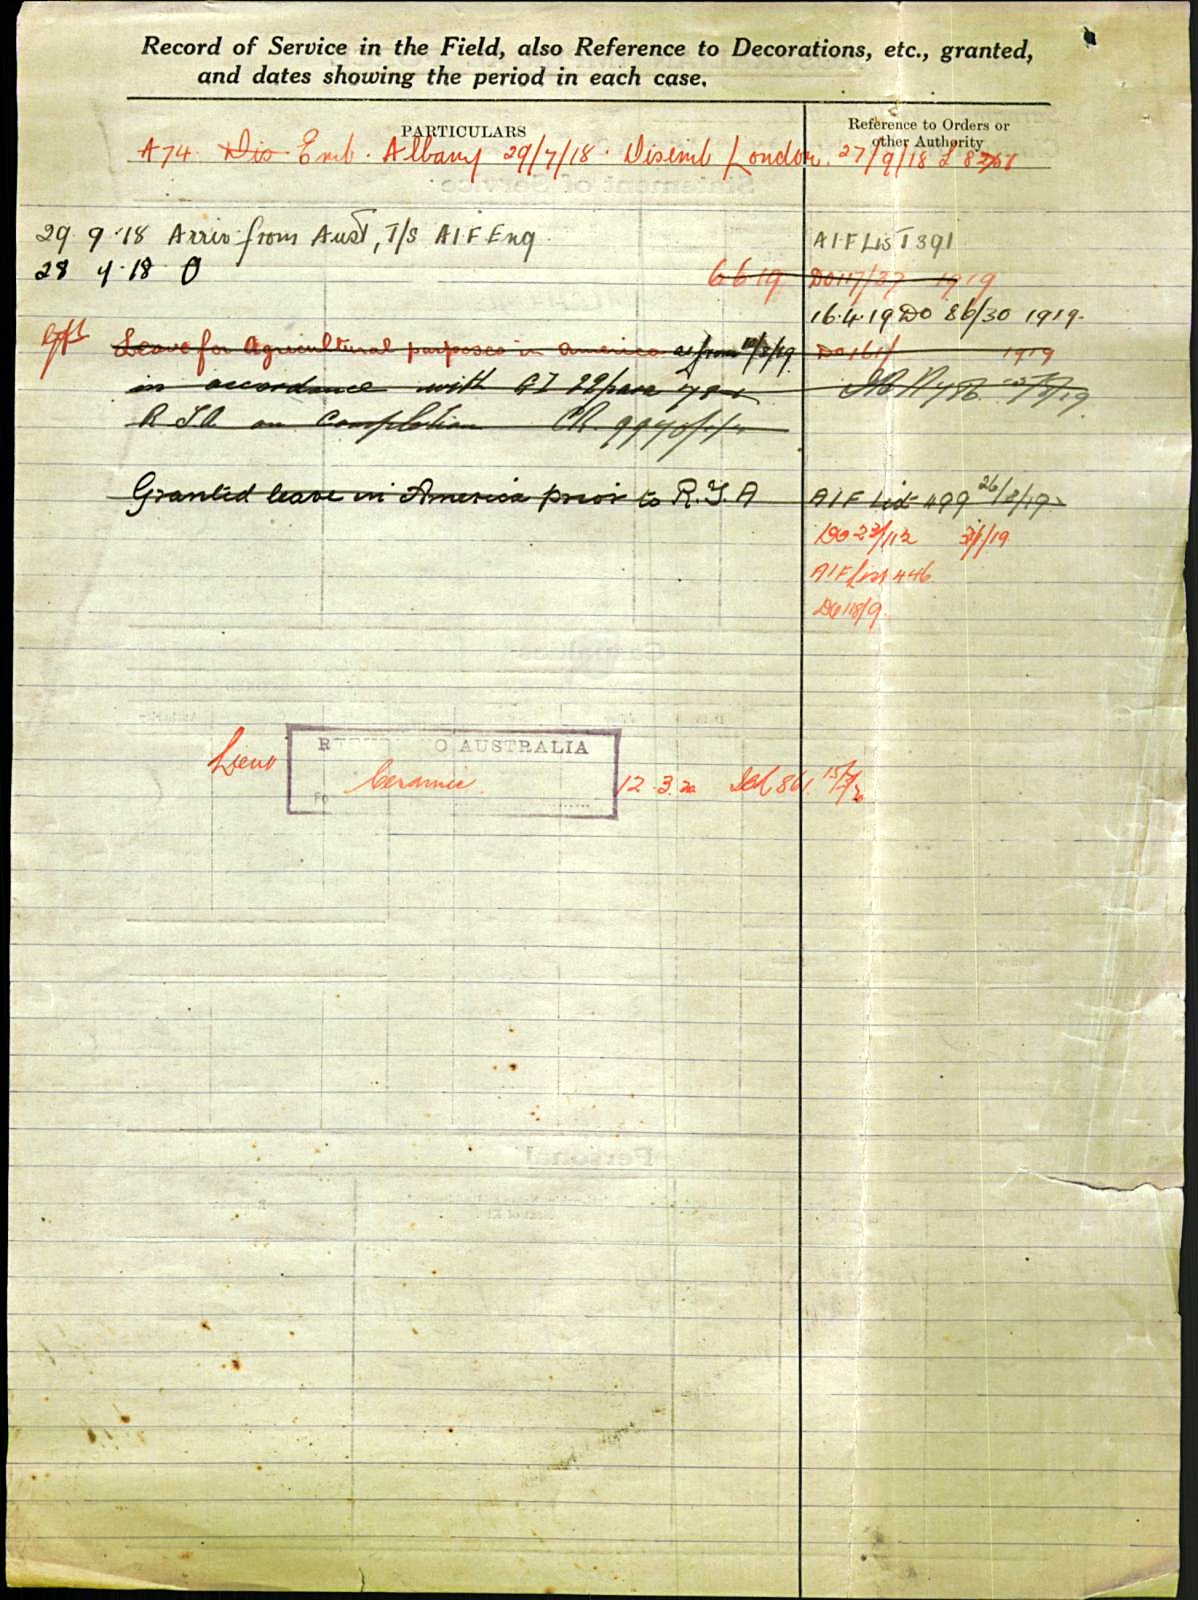 Record of Service in the Field, also Reference to Decorations, etc., granted,
and dates showing the period in each case.
PARTICULARS
Reference to Orders or
other Authority
A74. Dis Emb. Albany 29/7/18. Disemb London. 27/9/18
29 9.18 Arriv from Aust, T/S AIF Eng.
AIF List 391
28 4.18 O
6 6 19 DO 117/37 1919
16.4.19 DO 86/30 1919.
Leave for Agricultural purposes in America as from 10/3/19 DO 161/ 1919
in accordance with para
R T A on Completion
Granted leave in America prior to R.T.A
AIF List 499 26/8/19
DO 23/112
AIF List 446
DO 118/9.
O AUSTRALIA
Ceramic
12.3.20 861